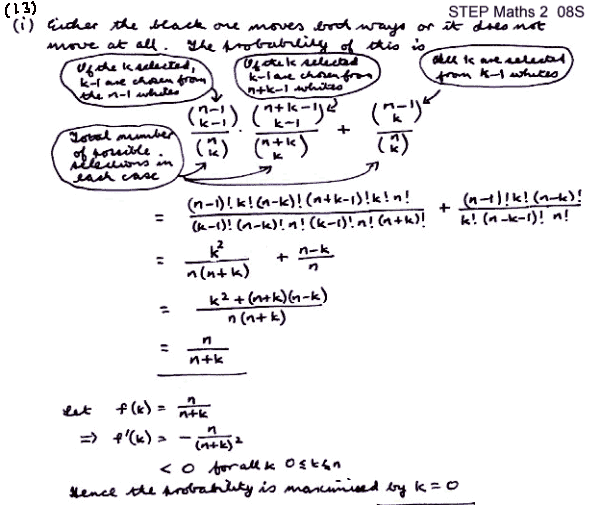 (13) STEP Maths 2 08S
(i) Either the black one moves both ways or it does not
move at all. The probability of this is
Of the k selected,
k-1 are chosen from
the n-1 whites
Of the k selected
k-1 are chosen from
n+k-1 whites
All k are selected
from k-1 whites
Total number
of possible
selections in
each case
\frac{\binom{n-1}{k-1}}{\binom{n}{k}} . \frac{\binom{n+k-1}{k-1}}{\binom{n+k}{k}} + \frac{\binom{n-1}{k}}{\binom{n}{k}}
= \frac{(n-1)! k! (n-k)! (n+k-1)! k! n!}{(k-1)! (n-k)! n! (k-1)! n! (n+k)!} + \frac{(n-1)! k! (n-k)!}{k! (n-k-1)! n!}
= \frac{k^2}{n(n+k)} + \frac{n-k}{n}
= \frac{k^2+(n+k)(n-k)}{n(n+k)}
= \frac{n}{n+k}
Let f(k) = \frac{n}{n+k}
⇒ f'(k) = - \frac{n}{(n+k)^2}
< 0 for all k 0 ≤ k ≤ n
Hence the probability is maximised by k = 0